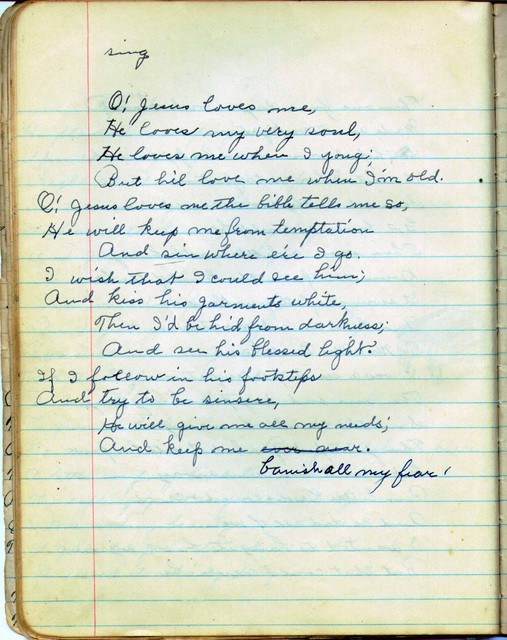 sing
O! Jesus loves me,
He loves my very soul,
He loves me when I yong;
But hil love me when I'm old.
O! Jesus loves me the bible tells me so,
He will keep me from temptation
And sin where ére I go.
I wish that I could see him;
And kiss his garments white,
Then I'd be hid from darkness;
And see his blessed light.
If I follow in his footsteps
And try to be sinsere,
He will give me all my needs;
And keep me ever near.
banish all my fear!